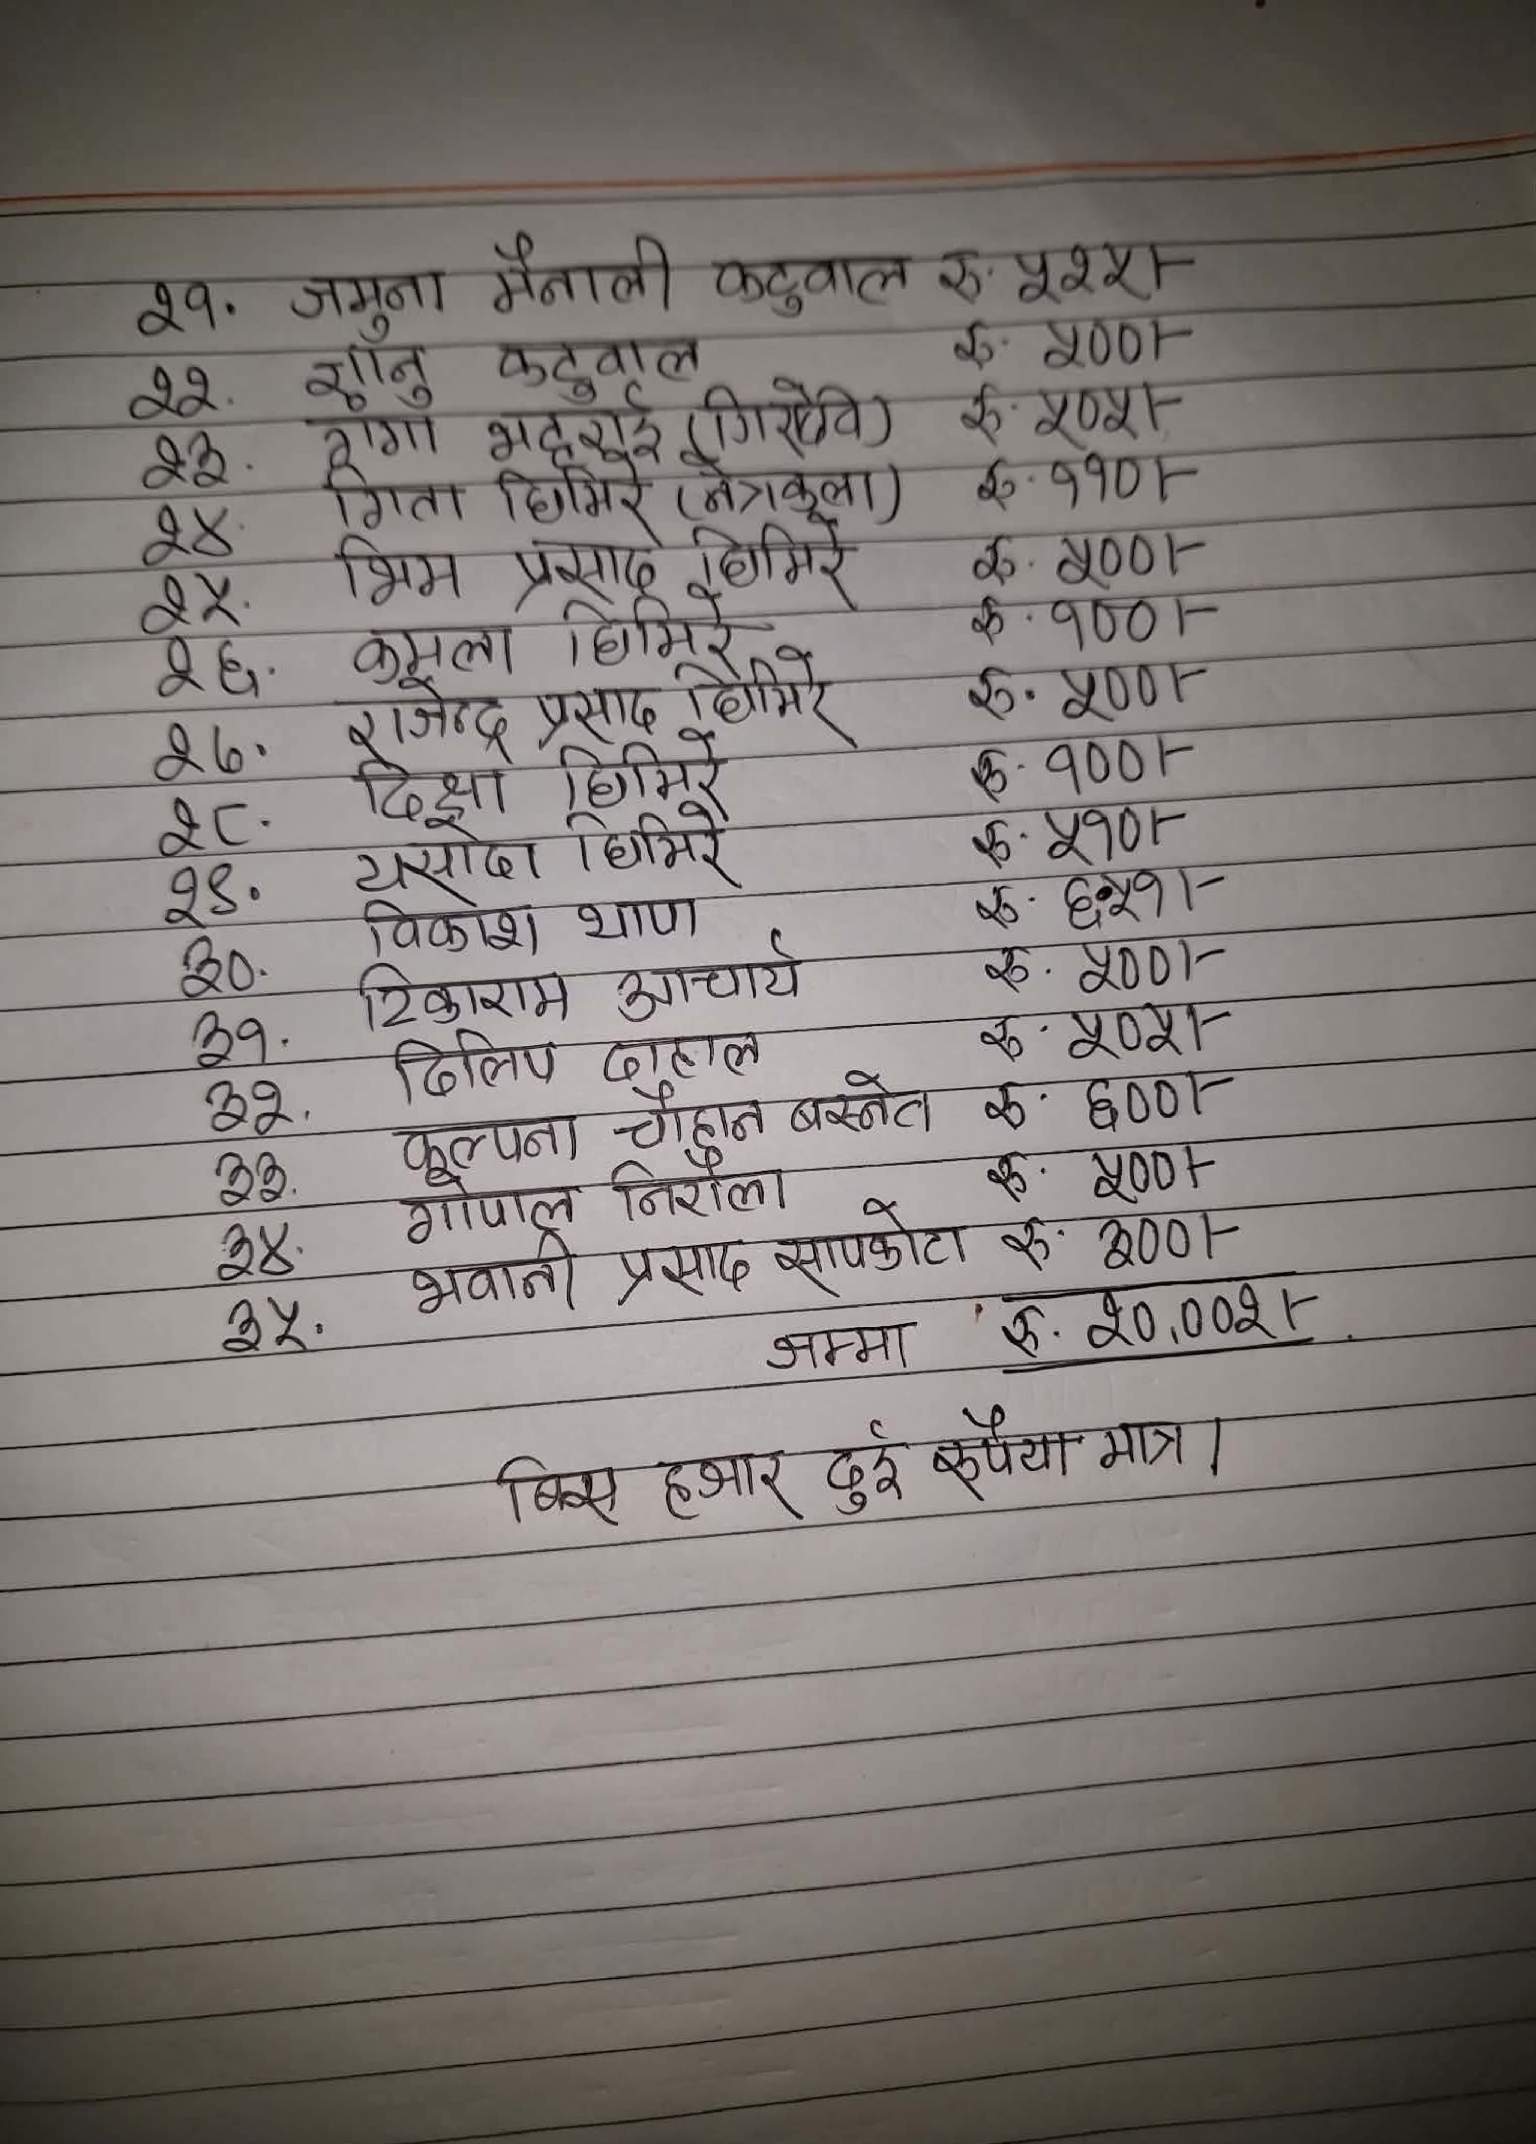 २१. जमुना मैनाली कटुवाल रु. ५२५।-
२२. शानु कटुवाल रु. ५००।-
२३. गंगा भट्टराई (गिरीदेवि) रु. ५०५।-
२४. गिता घिमिरे (नेत्रकुला) रु. ११०।-
२५. भिम प्रसाद घिमिरे रु. ५००।-
२६. कमला घिमिरे रु. १००।-
२७. राजेन्द्र प्रसाद घिमिरे रु. ५००।-
२८. दिक्षा घिमिरे रु. १००।-
२९. यसोदा घिमिरे रु. ५१०।-
३०. विकाश थापा रु. ६५१।-
३१. टिकाराम आचार्य रु. ५००।-
३२. दिलिप दाहाल रु. ५०५।-
३३. कल्पना चौहान बस्नेत रु. ६००।-
३४. गोपाल निरौला रु. ५००।-
३५. भवानी प्रसाद सापकोटा रु. ३००।-
जम्मा रु. २०,००२।-
बिस हजार दुई रुपैया मात्र।